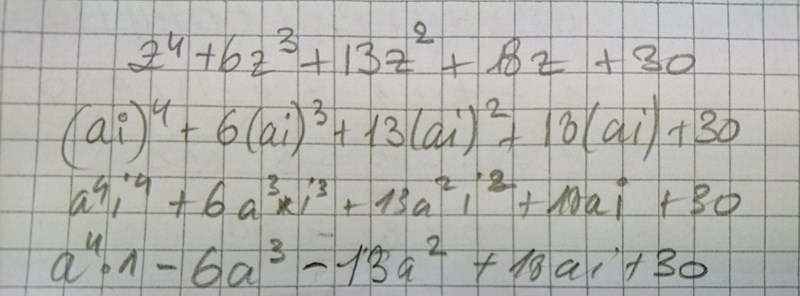 z⁴ + 6z³ + 13z² + 18z + 30
(ai)⁴ + 6(ai)³ + 13(ai)² + 18(ai) + 30
a⁴i⁴ + 6a³*i³ + 13a²i² + 18ai + 30
a⁴·1 - 6a³ - 13a² + 18ai + 30